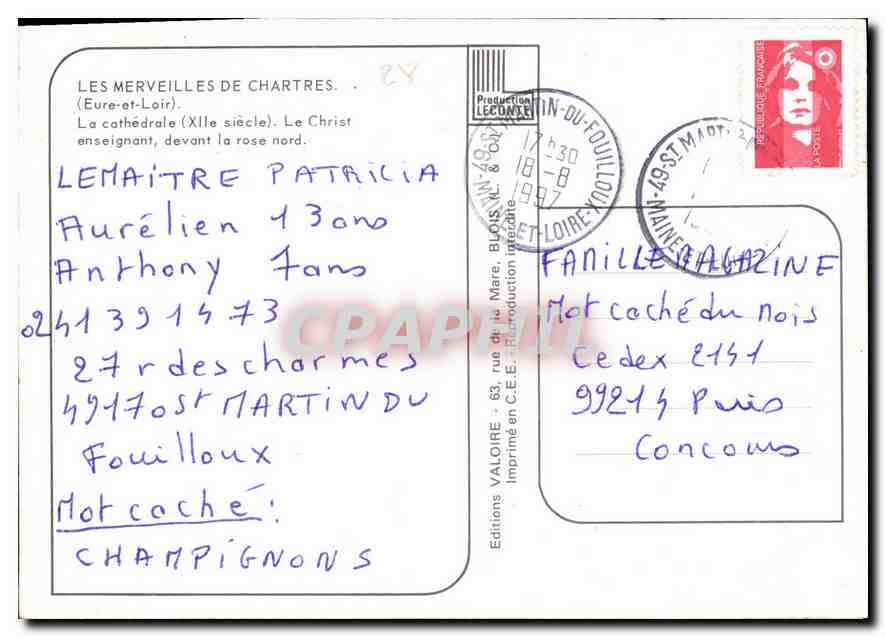 LES MERVEILLES DE CHARTRES.
(Eure-et-Loir).
La cathédrale (XIIe siècle). Le Christ
enseignant, devant la rose nord.
LEMAITRE PATRICIA
Aurélien 13 ans
Anthony 7 ans
02 41 39 14 73
27 r des charmes
49170 St MARTIN DU
Fouilloux
Mot caché :
CHAMPIGNONS
Editions VALOIRE - 63, rue de la Mare, BLOIS
Imprimé en C.E.E. - Reproduction interdite
Production
LECONTE
49-ST MARTIN-DU-FOUILLOUX
17h30
18-8
1997
MAINE-ET-LOIRE
49-ST MART
MAINE
REPUBLIQUE FRANÇAISE
LA POSTE
FAMILLE MAGAZINE
Mot caché du mois
Cedex 2141
99214 Paris
Concours
CPAPHIL